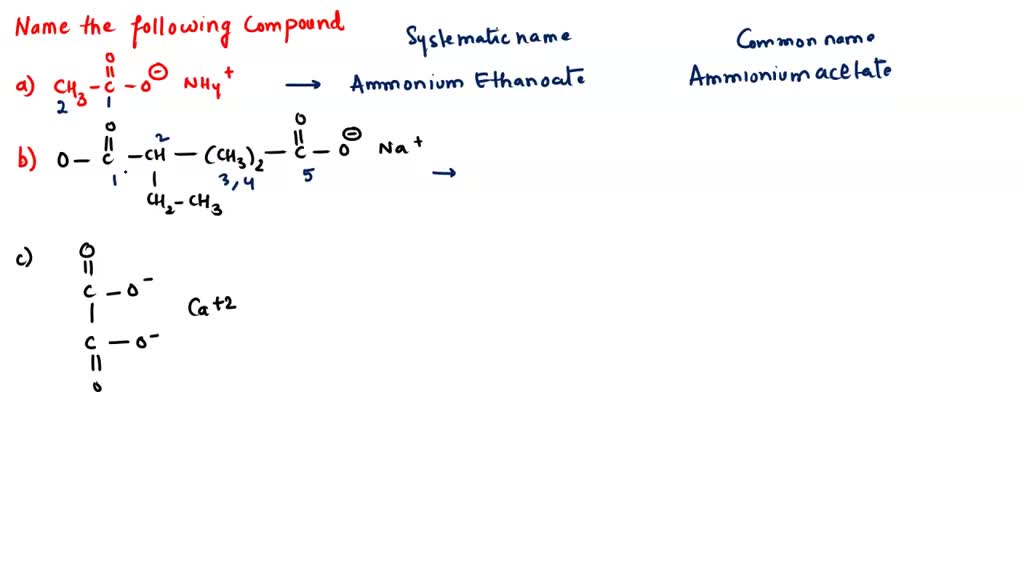 Name the following Compound
Systematic name
Common name
a) CH3 - C - O⊖ NH4+ → Ammonium Ethanoate
O
||
2 1
Ammionium acetate
b) O - C - CH - (CH3)2 - C - O⊖ Na+ →
O
||
O
||
1 2 3,4 5
|
CH2 - CH3
c)
O
||
C - O-
|
Ca+2
C - O-
||
O